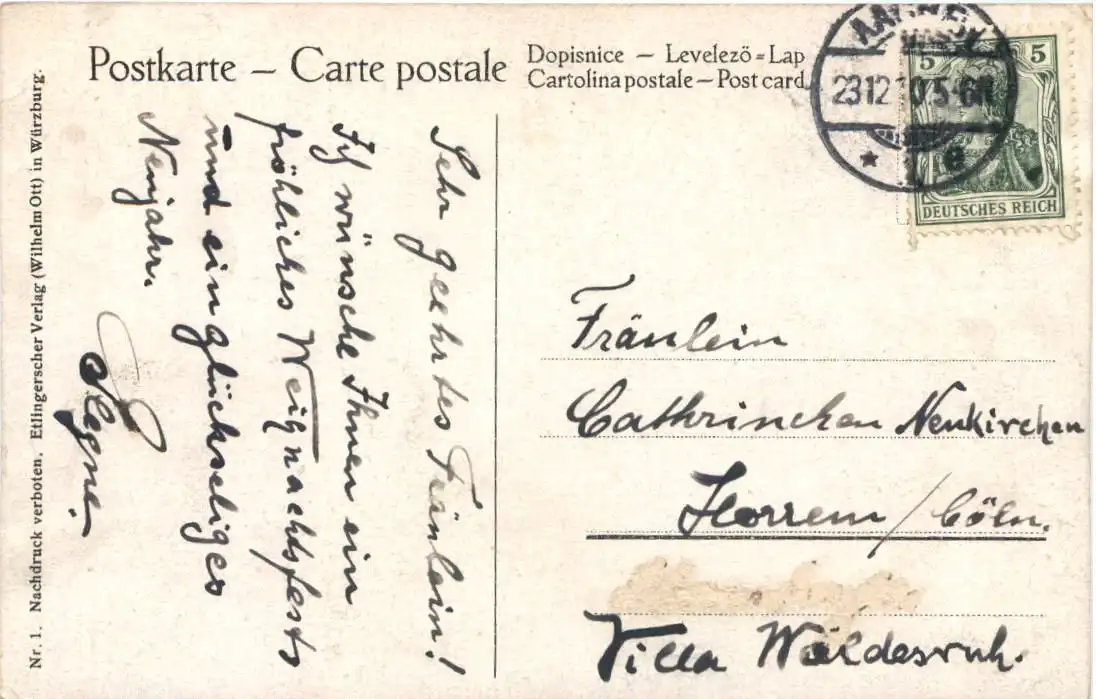 Postkarte – Carte postale
Dopisnice – Levelezö=Lap
Cartolina postale – Post card
23 12 10 5-6N
* e
5 5
DEUTSCHES REICH
Sehr geehrtes Fräulein!
Ich wünsche Ihnen ein
fröhliches Weihnachtsfests
und ein glückseliges
Neujahr.
Fräulein
Cathrinchen Neukirchen
Horrem / Cöln.
Villa Waldesruh.
Nr. 1. Nachdruck verboten. Etlingerscher Verlag (Wilhelm Ott) in Würzburg.